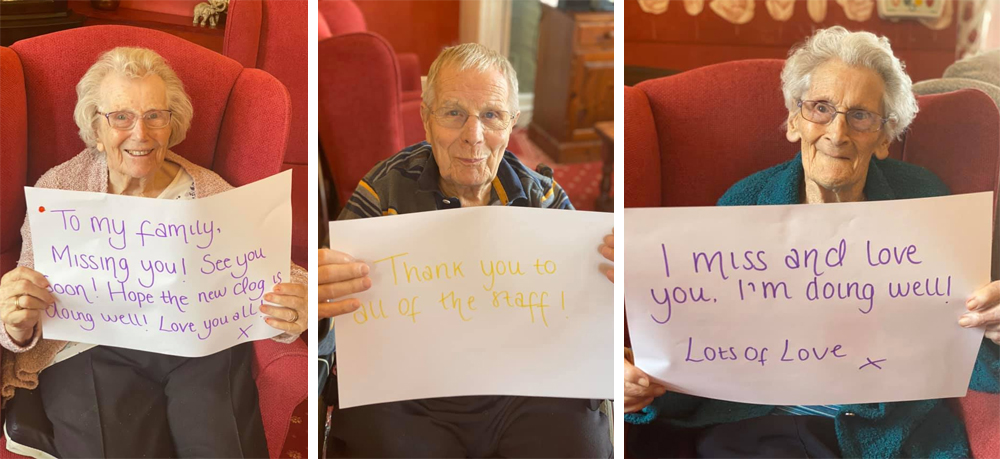 To my family,
Missing you! See you
Soon! Hope the new dog is
doing well! Love you all!
X
Thank you to
all of the staff!
I miss and love
you. I'm doing well!
Lots of Love X